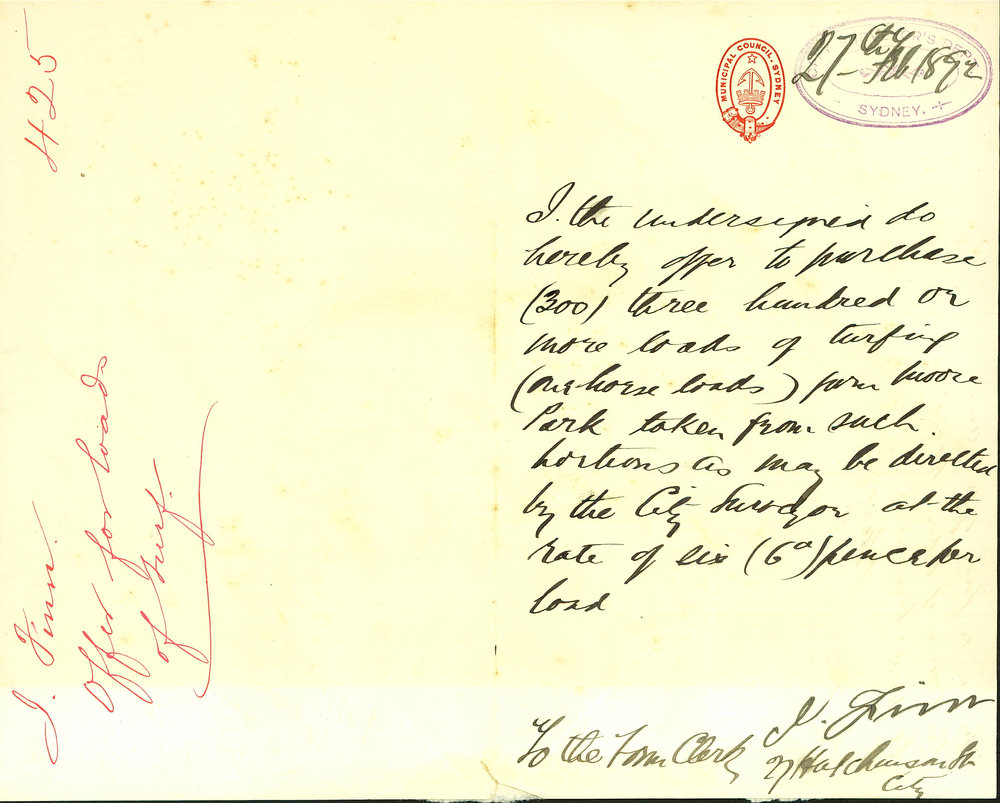 425
J. Finn.
Offer for loads
of Turf.
MUNICIPAL COUNCIL. SYDNEY
SYDNEY.
City
27 - Feb 1892
I. the undersigned do
hereby offer to purchase
(300) three hundred or
more loads of turfing
(one horse loads) from Moore
Park taken from such
portions as may be directed
by the City Surveyor at the
rate of six (6d) pence per
load
J. Finn
To the Town Clerk
27 Hutchinson St
City